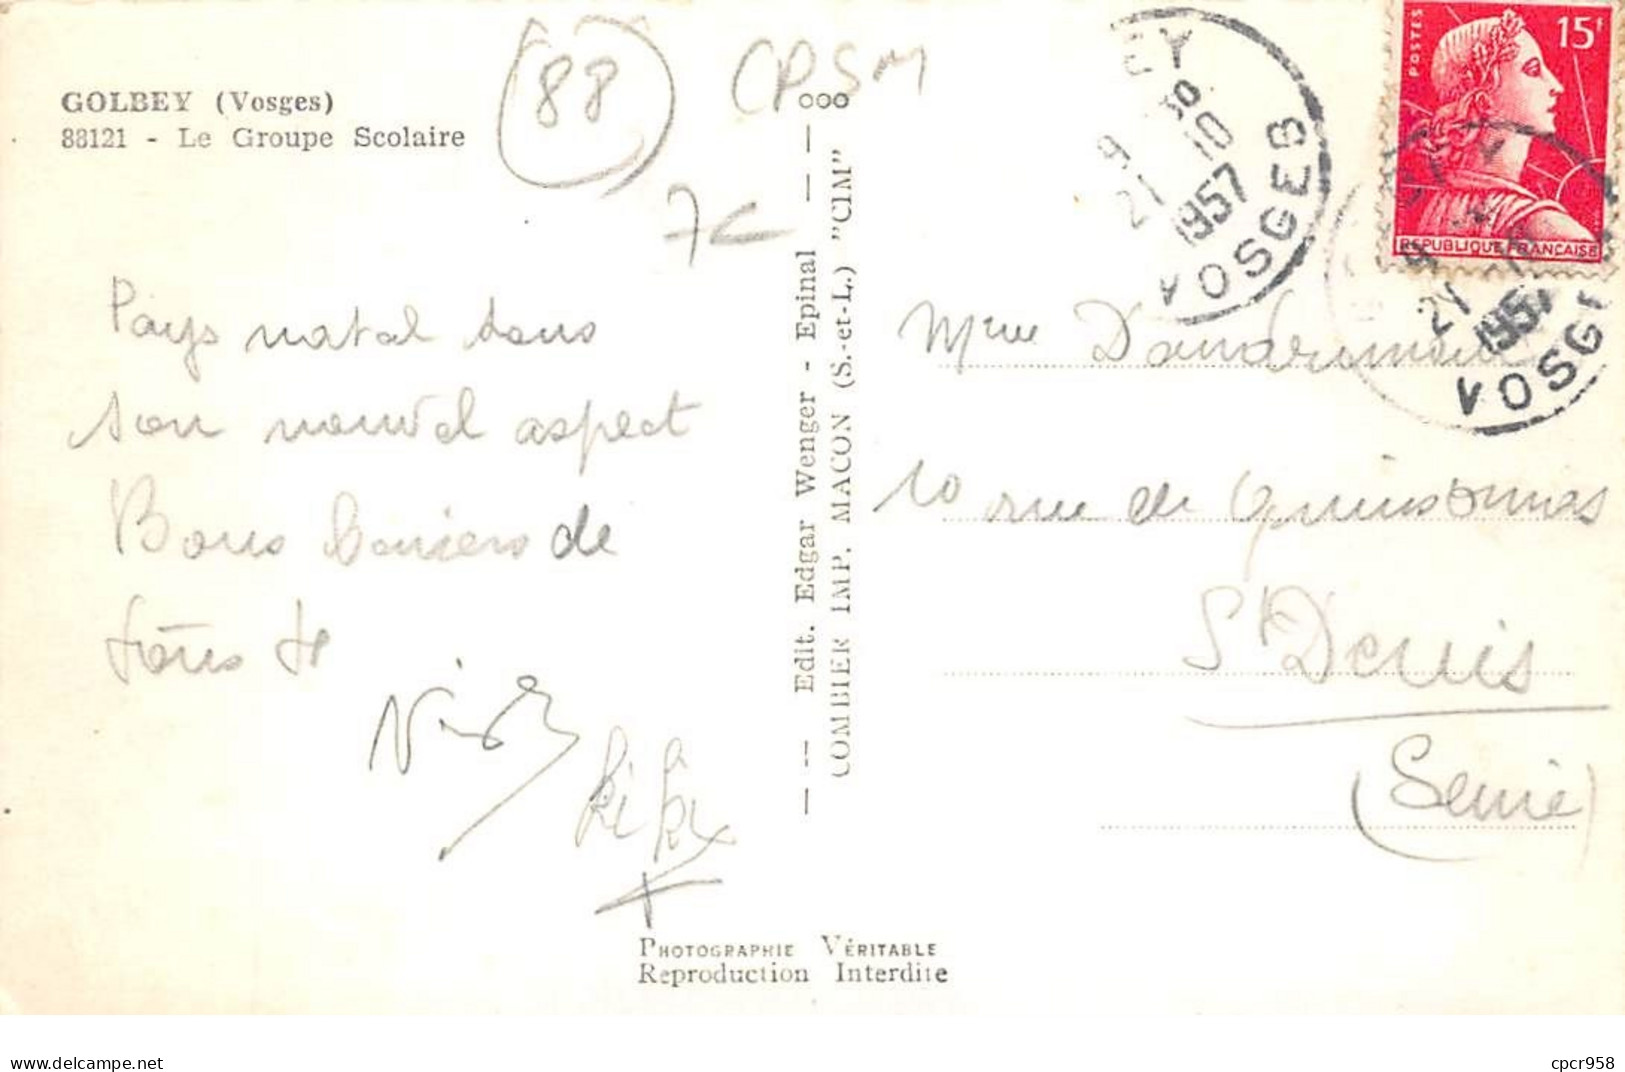 GOLBEY (Vosges)
88121 - Le Groupe Scolaire
88
CPSM
7€
Pays natal dans
son nouvel aspect
Bons baisers de
tous
Kiki
— -- Edit. Edgar Wenger - Epinal — — ooo
COMBIER IMP. MACON (S.-et-L.) "CIM"
PHOTOGRAPHIE VÉRITABLE
Reproduction Interdite
EY
9 H
21 - 10
1957
VOSGES
POSTES
15F
REPUBLIQUE FRANCAISE
21
1957
VOSGES
Mme
10 rue de
St Denis
(Seine)
www.delcampe.net
cpcr958